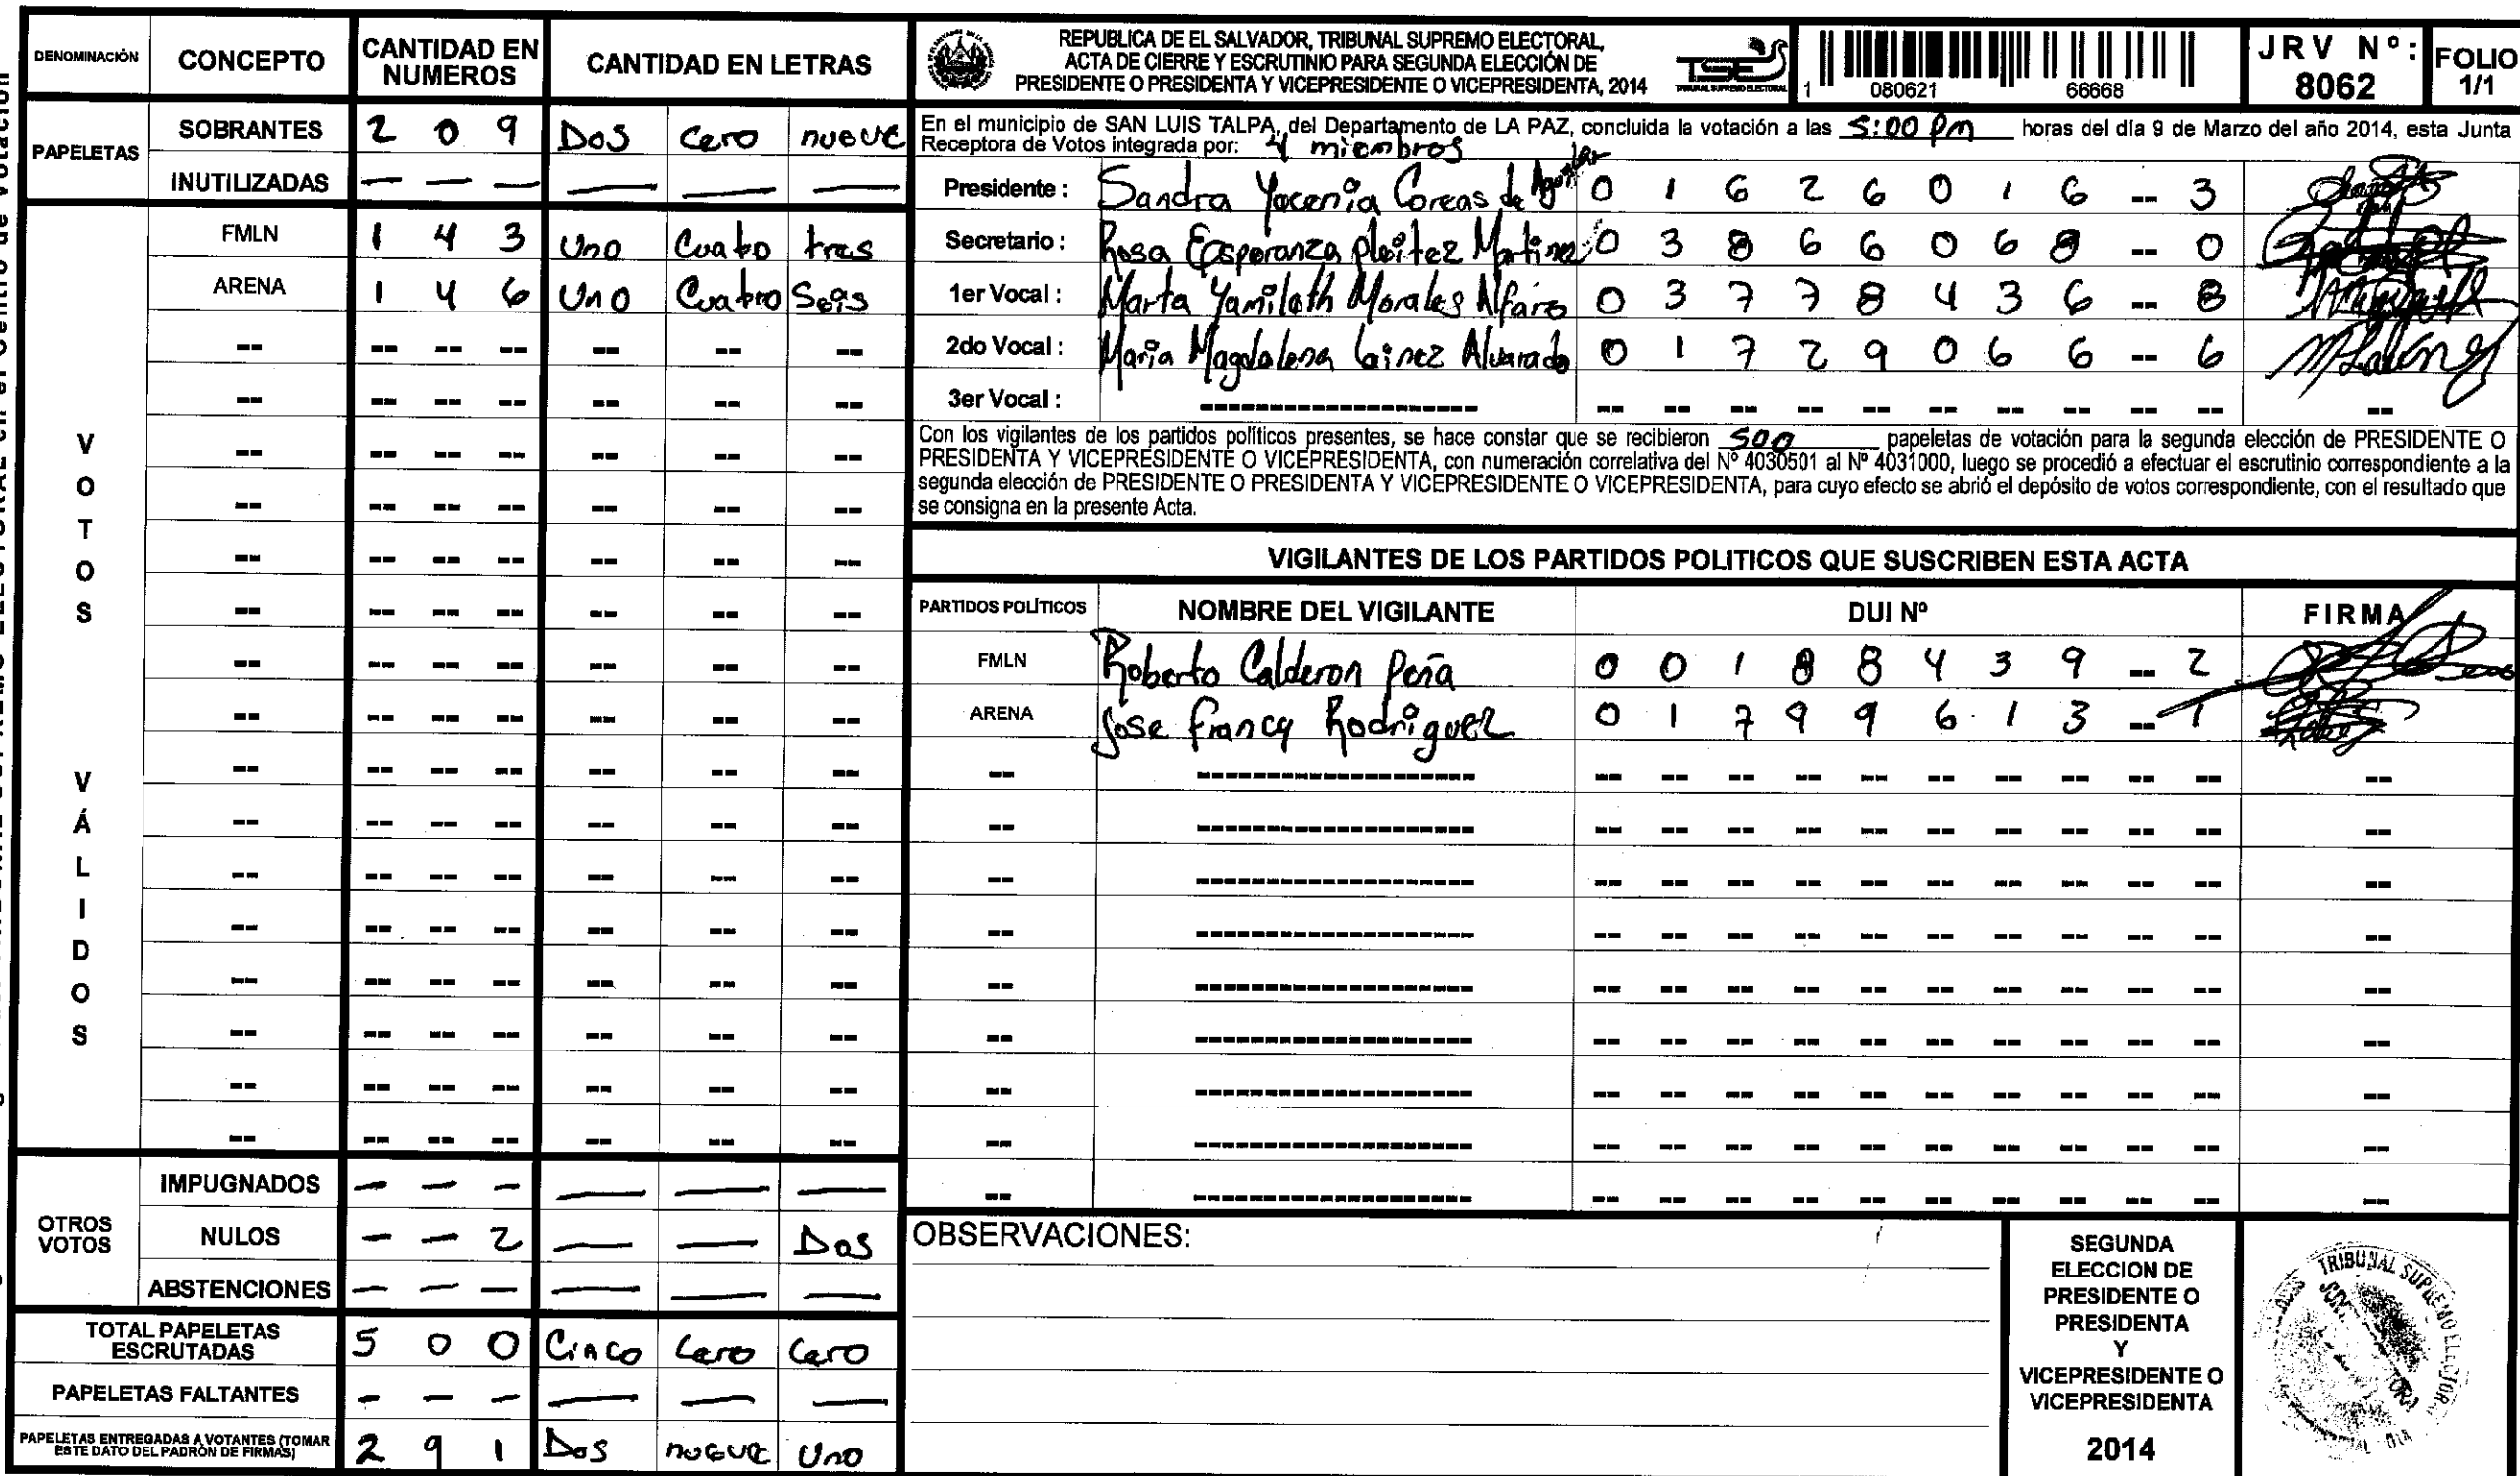 DENOMINACIÓN CONCEPTO CANTIDAD EN NUMEROS CANTIDAD EN LETRAS
PAPELETAS
SOBRANTES 2 0 9 Dos Cero nueve
INUTILIZADAS — — — — — —
VOTOS VÁLIDOS
FMLN 1 4 3 Uno Cuatro tres
ARENA 1 4 6 Uno Cuatro Seis
OTROS VOTOS
IMPUGNADOS — — — — — —
NULOS — — 2 — — Dos
ABSTENCIONES — — — — — —
TOTAL PAPELETAS ESCRUTADAS 5 0 0 Cinco Cero Cero
PAPELETAS FALTANTES - - - — — —
PAPELETAS ENTREGADAS A VOTANTES (TOMAR ESTE DATO DEL PADRÓN DE FIRMAS) 2 9 1 Dos nueve Uno
REPUBLICA DE EL SALVADOR, TRIBUNAL SUPREMO ELECTORAL,
ACTA DE CIERRE Y ESCRUTINIO PARA SEGUNDA ELECCIÓN DE
PRESIDENTE O PRESIDENTA Y VICEPRESIDENTE O VICEPRESIDENTA, 2014
TSE
TRIBUNAL SUPREMO ELECTORAL
1 080621 66668
JRV Nº: 8062
FOLIO 1/1
En el municipio de SAN LUIS TALPA, del Departamento de LA PAZ, concluida la votación a las 5:00 Pm horas del día 9 de Marzo del año 2014, esta Junta
Receptora de Votos integrada por: 4 miembros
Presidente : Sandra Yacenia Coreas de 0 1 6 2 6 0 1 6 -- 3
Secretario : Rosa Esperanza Pleitez Martinez 0 3 8 6 6 0 6 8 -- 0
1er Vocal : Marta Yamileth Morales Alfaro 0 3 7 7 8 4 3 6 -- 8
2do Vocal : Maria Magdalena Lainez Alvarado 0 1 7 2 9 0 6 6 -- 6
3er Vocal :
Con los vigilantes de los partidos políticos presentes, se hace constar que se recibieron 500 papeletas de votación para la segunda elección de PRESIDENTE O
PRESIDENTA Y VICEPRESIDENTE O VICEPRESIDENTA, con numeración correlativa del Nº 4030501 al Nº 4031000, luego se procedió a efectuar el escrutinio correspondiente a la
segunda elección de PRESIDENTE O PRESIDENTA Y VICEPRESIDENTE O VICEPRESIDENTA, para cuyo efecto se abrió el depósito de votos correspondiente, con el resultado que
se consigna en la presente Acta.
VIGILANTES DE LOS PARTIDOS POLITICOS QUE SUSCRIBEN ESTA ACTA
PARTIDOS POLÍTICOS NOMBRE DEL VIGILANTE DUI Nº FIRMA
FMLN Roberto Calderon Peña 0 0 1 8 8 4 3 9 -- 2
ARENA Jose Francy Rodriguez 0 1 7 9 9 6 1 3 -- 1
OBSERVACIONES:
SEGUNDA
ELECCION DE
PRESIDENTE O
PRESIDENTA
Y
VICEPRESIDENTE O
VICEPRESIDENTA
2014
TRIBUNAL SUPREMO ELECTORAL